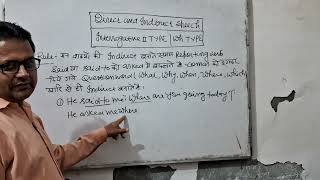 Direct and Indirect Speech
Interrogative II TYPE [Wh TYPE]
Rule:- इन वाक्यों को Indirect बनाते समय Reporting verb
Said या said to को asked में बदलते है comma को हटाकर
दिये गये Question word (What, Why, When, Where, Which)
आदि से ही Indirect बनाते है।
① He said to me, Where are you going today?
He asked me where